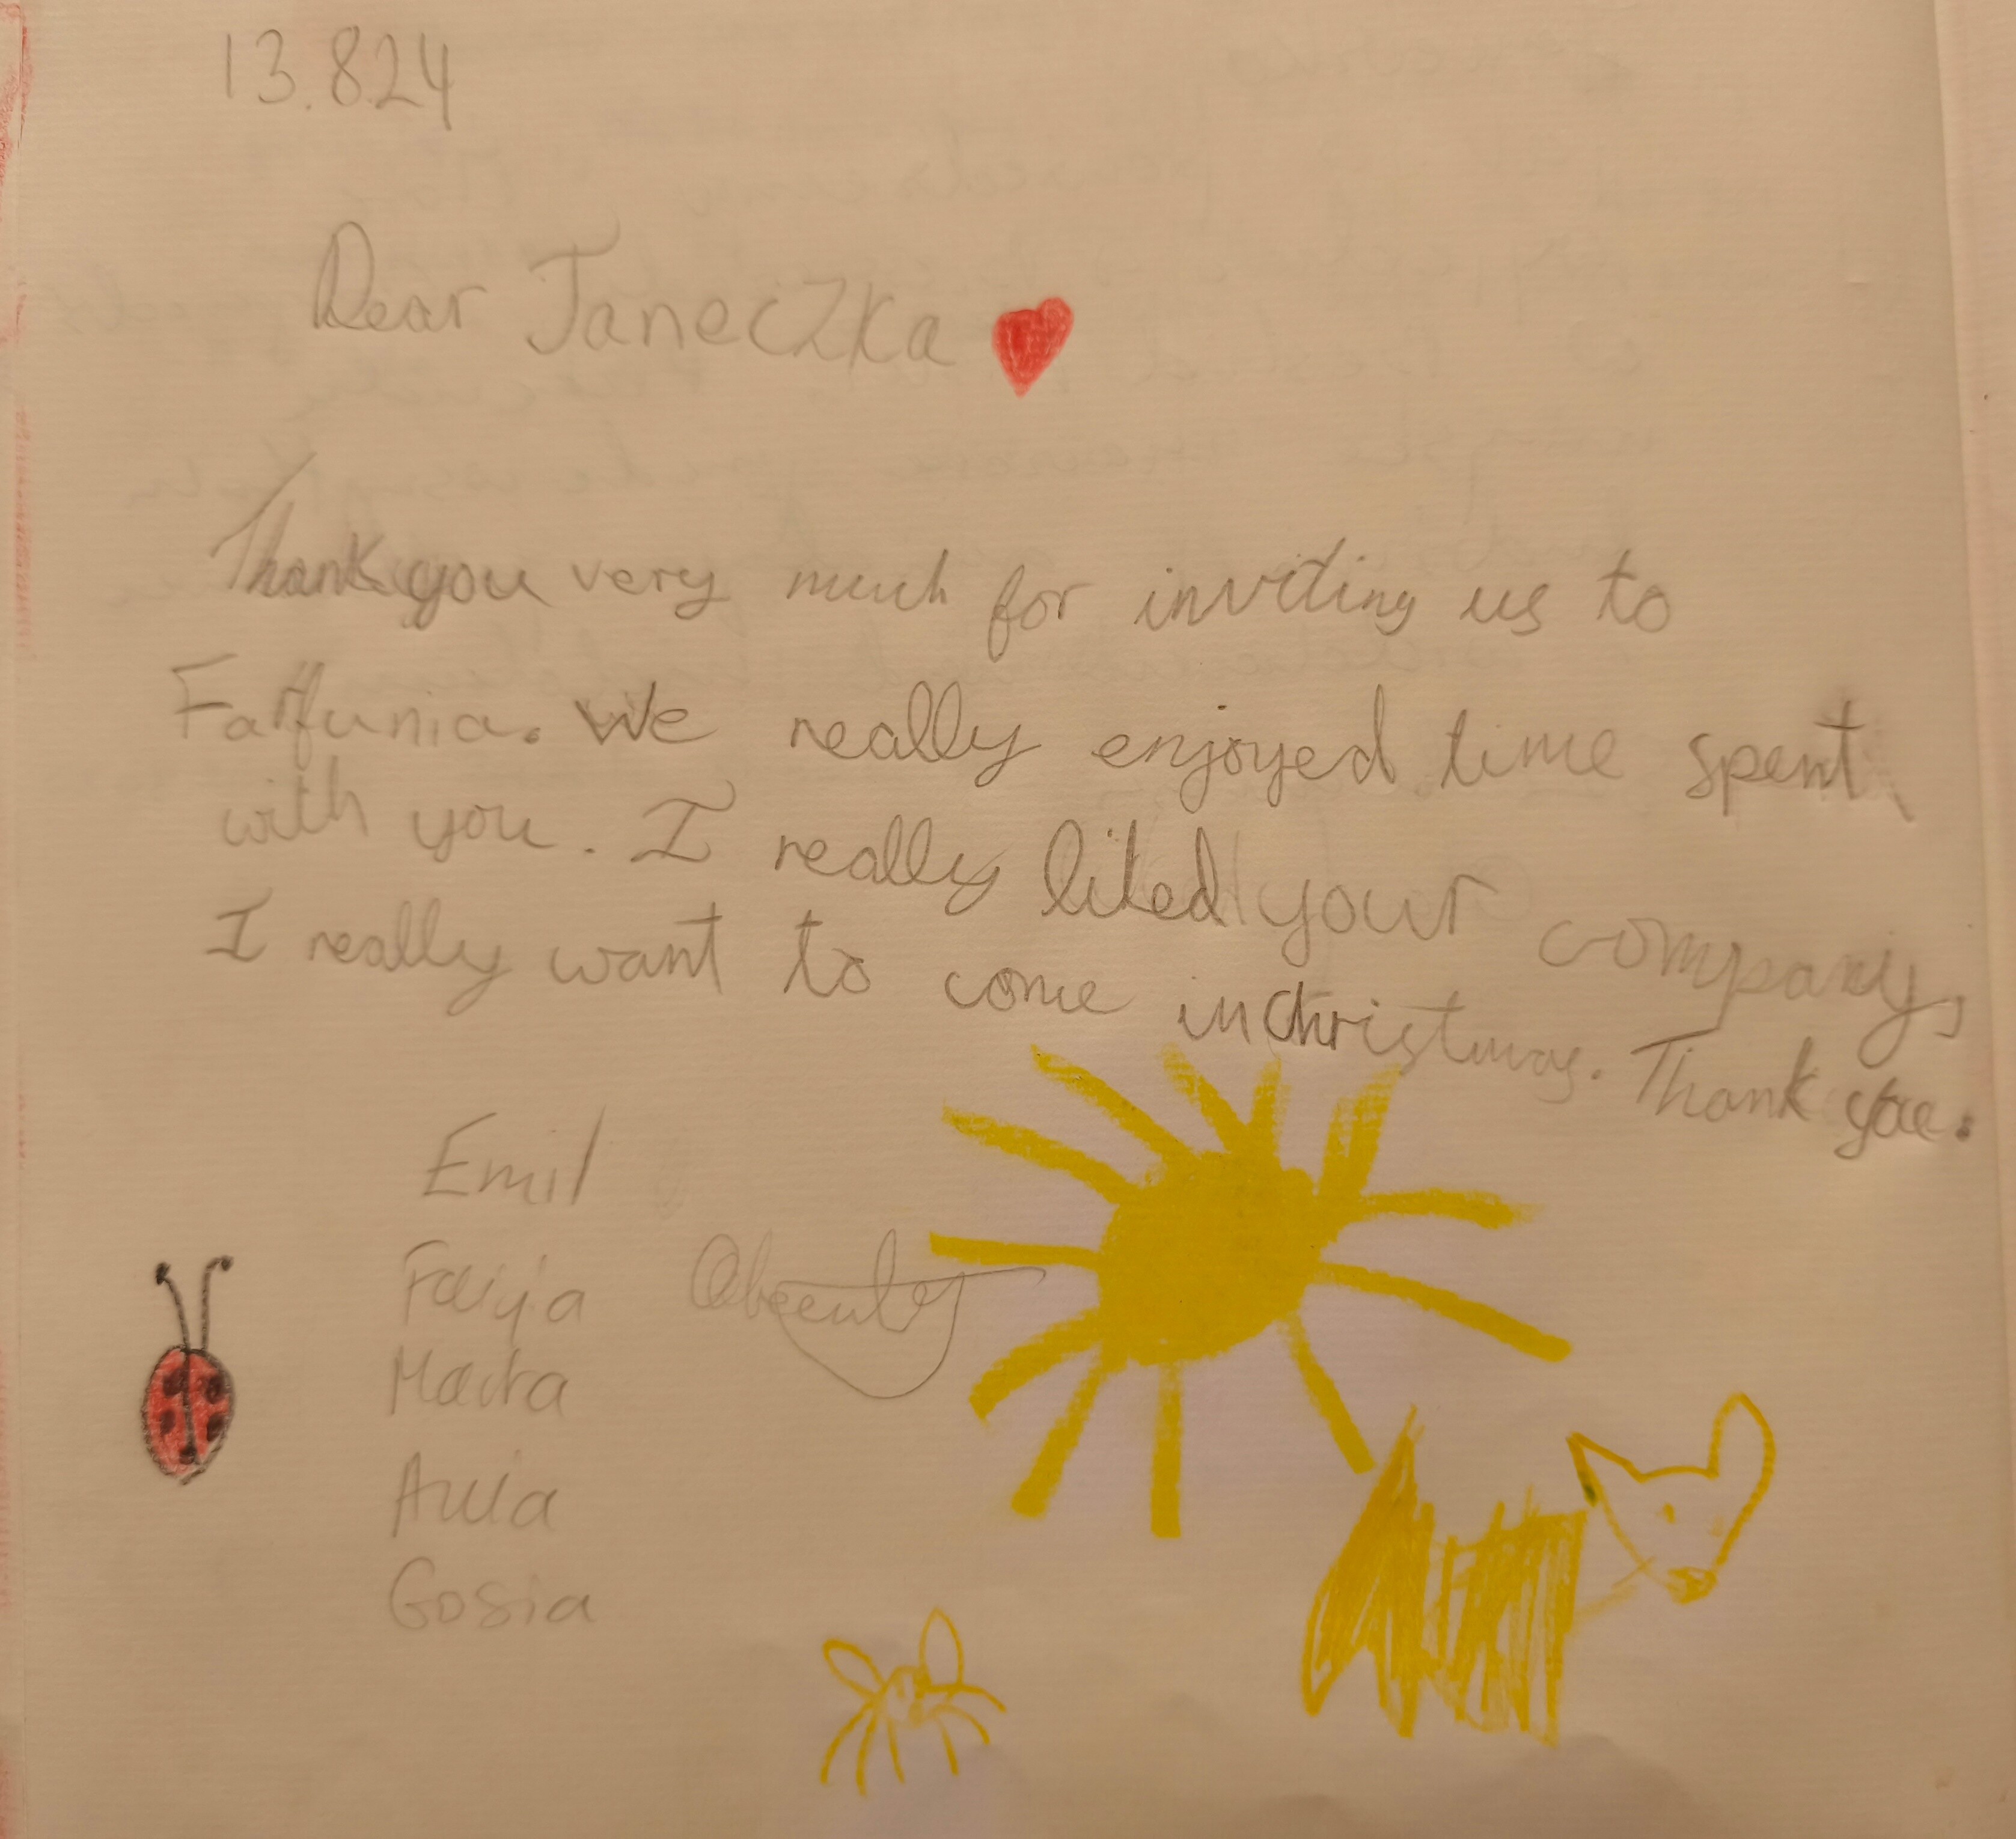 13.8.24
Dear Janeczka
Thank you very much for inviting us to
Farfunia. We really enjoyed time spent
with you. I really liked your company,
I really want to come in christmas. Thank you.
Emil
Marta
Gosia